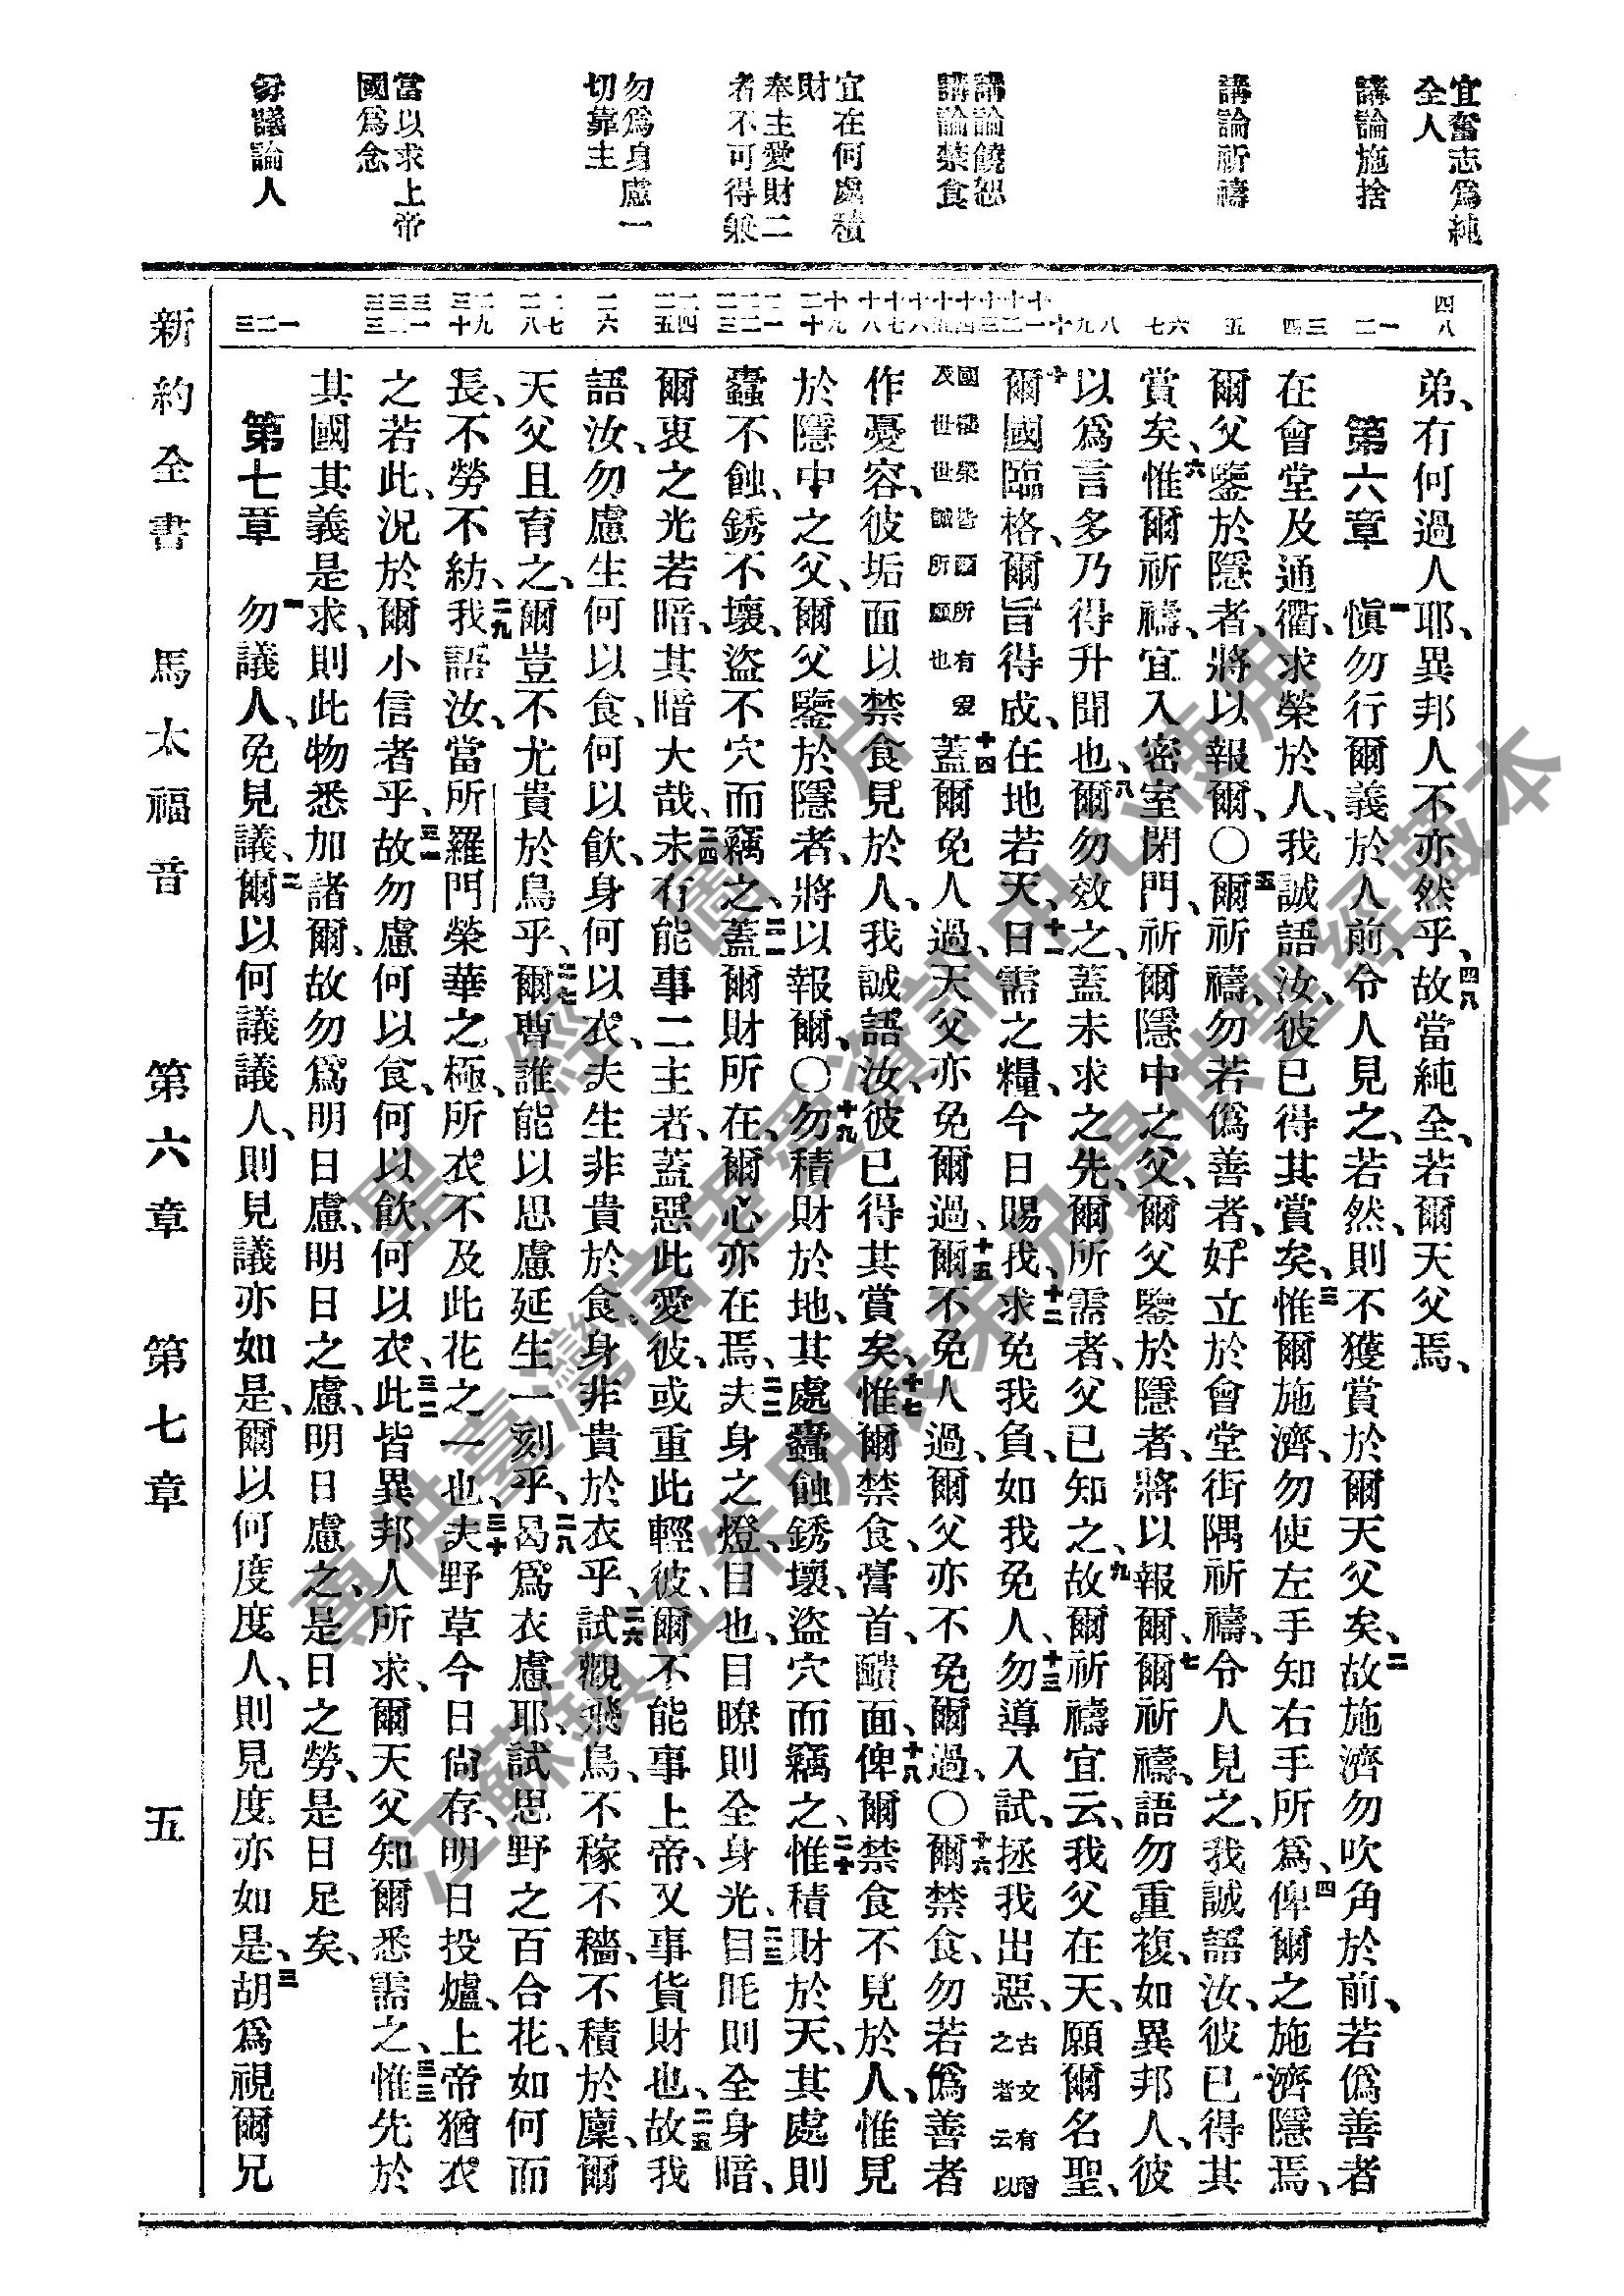 宜奮志爲純
全人
講論施捨
講論祈禱
講論饒恕
講論禁食
宜在何處積
財
奉主愛財二
者不可得兼
勿爲身慮一
切靠主
當以求上帝
國爲念
毋議論人
四八
一二
三四
五
六七
八九十
十一十二十三
十四十五十六
十七十八
十九二十
二一二二二三
二四二五
二六
二七二八
二九三十
三一三二三三
一二三
弟、有何過人耶、異邦人不亦然乎、四八故當純全、若爾天父焉、
第六章 一愼勿行爾義於人前、令人見之、若然、則不獲賞於爾天父矣、二故施濟勿吹角於前、若僞善者
在會堂及通衢、求榮於人、我誠語汝、彼已得其賞矣、三惟爾施濟、勿使左手知右手所爲、四俾爾之施濟隱焉、
爾父鑒於隱者、將以報爾、〇五爾祈禱、勿若僞善者、好立於會堂街隅祈禱、令人見之、我誠語汝、彼已得其
賞矣、六惟爾祈禱、宜入密室閉門、祈爾隱中之父、爾父鑒於隱者、將以報爾、七爾祈禱、語勿重複、如異邦人、彼
以爲言多乃得升聞也、八爾勿效之、蓋未求之先、爾所需者、父已知之、九故爾祈禱宜云、我父在天、願爾名聖、
十爾國臨格、爾旨得成、在地若天、十一日需之糧、今日賜我、十二求免我負、如我免人、十三勿導入試、拯我出惡、古文有階之者云以
國權榮皆爾所有爰及世世誠所願也 十四蓋爾免人過、天父亦免爾過、十五爾不免人過、爾父亦不免爾過、〇十六爾禁食、勿若僞善者
作憂容、彼垢面以禁食見於人、我誠語汝、彼已得其賞矣、十七惟爾禁食、膏首、醴面、十八俾爾禁食不見於人、惟見
於隱中之父、爾父鑒於隱者、將以報爾、〇十九勿積財於地、其處蠹蝕銹壞、盜穴而竊之、二十惟積財於天、其處則
蠹不蝕、銹不壞、盜不穴而竊之、二一蓋爾財所在、爾心亦在焉、二二夫身之燈、目也、目瞭則全身光、二三目眊則全身暗、
爾衷之光若暗、其暗大哉、二四未有能事二主者、蓋惡此愛彼、或重此輕彼、爾不能事上帝、又事貨財也、二五故我
語汝、勿慮生何以食、何以飮、身何以衣、夫生非貴於食、身非貴於衣乎、二六試觀飛鳥、不稼不穡、不積於廩、爾
天父且育之、爾豈不尤貴於鳥乎、二七爾曹誰能以思慮延生一刻乎、二八曷爲衣慮耶、試思野之百合花、如何而
長、不勞不紡、二九我語汝、當所羅門榮華之極、所衣不及此花之一也、三十夫野草今日尙存、明日投爐、上帝猶衣
之若此、況於爾小信者乎、三一故勿慮何以食、何以飮、何以衣、三二此皆異邦人所求、爾天父知爾悉需之、三三惟先於
其國其義是求、則此物悉加諸爾、故勿爲明日慮、明日之慮、明日慮之、是日之勞、是日足矣、
第七章 一勿議人、免見議、二爾以何議議人、則見議亦如是、爾以何度度人、則見度亦如是、三胡爲視爾兄
新約全書 馬太福音 第六章 第七章 五
聖經圖片
專供臺灣信望愛資訊中心使用
江蘇鎮江朱明展弟兄提供聖經藏本